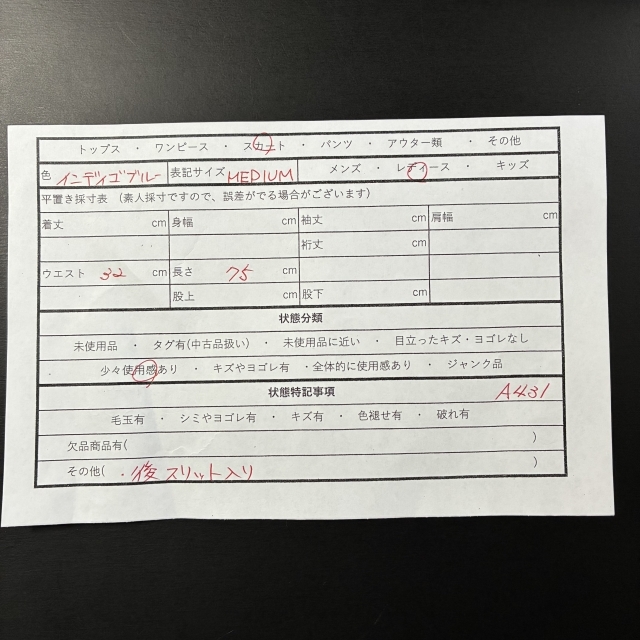 トップス ・ ワンピース ・ スカート ・ パンツ ・ アウター類 ・ その他
色 インディゴブルー 表記サイズ MEDIUM メンズ ・ レディース ・ キッズ
平置き採寸表 (素人採寸ですので、誤差がでる場合がございます)
着丈 cm 身幅 cm 袖丈 cm 肩幅 cm
裄丈 cm
ウエスト 32 cm 長さ 75 cm
股上 cm 股下 cm
状態分類
未使用品 ・ タグ有(中古品扱い) ・ 未使用品に近い ・ 目立ったキズ・ヨゴレなし
少々使用感あり ・ キズやヨゴレ有 ・全体的に使用感あり ・ ジャンク品
状態特記事項 A431
毛玉有 ・ シミやヨゴレ有 ・ キズ有 ・ 色褪せ有 ・ 破れ有
欠品商品有( )
その他( ・後スリット入り )